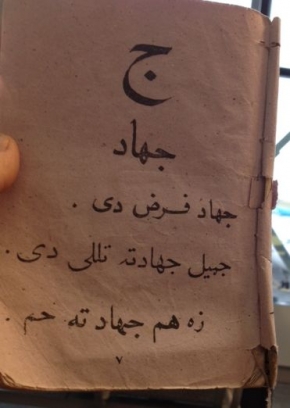 ج
جهاد
جهاد فرض دی .
جبیل جهادته تللی دی .
زه هم جهاد ته ځم .
۷